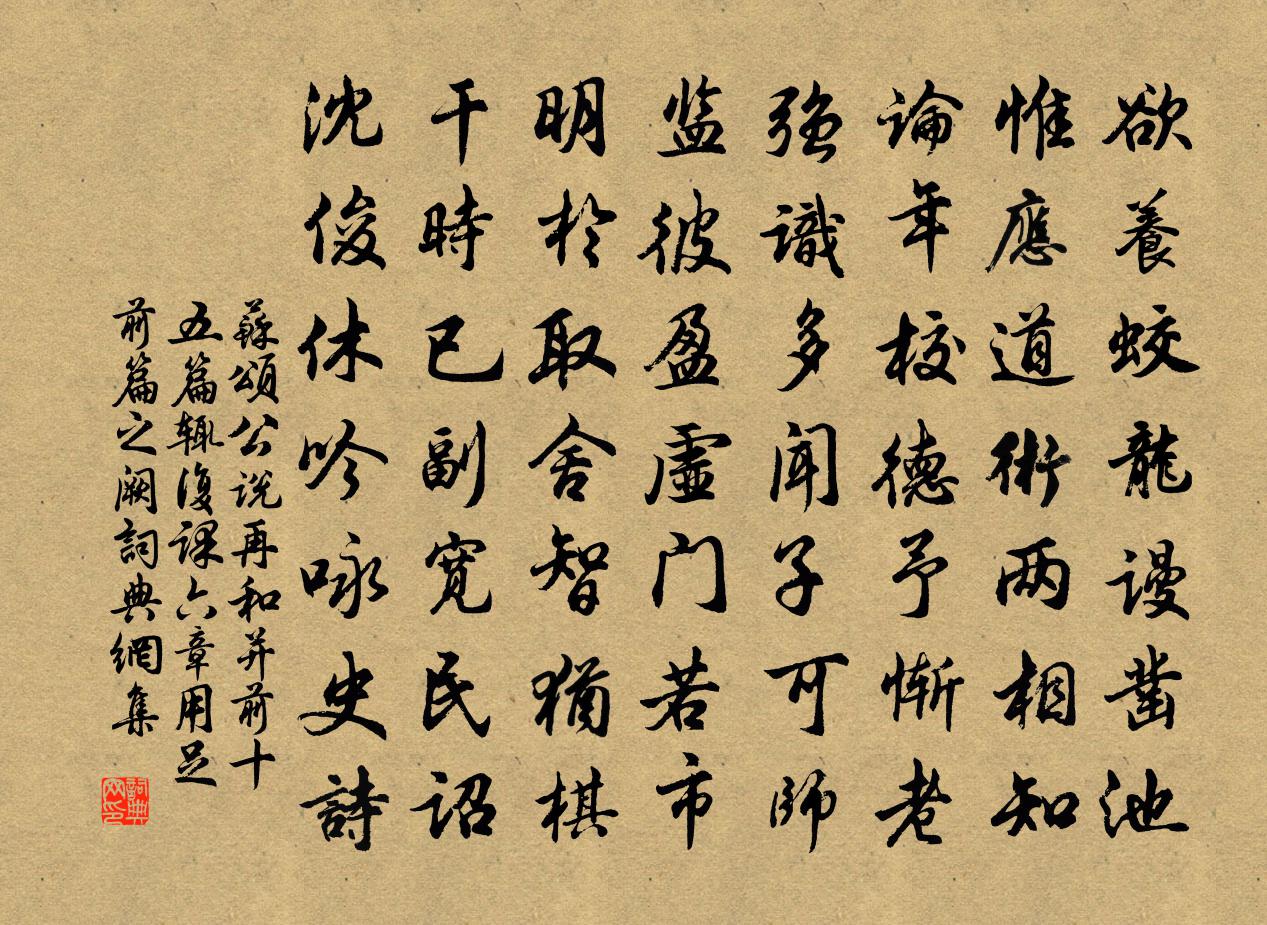 欲養蛟龍謾凿池
惟應道術两相知
論年校德予慚老
强識多聞子可師
监彼盈虛门若市
明於取舍智猶棋
干時已副寛民詔
沈俊休吟咏史詩
蘇頌公说再和并前十
五篇辄復課六章用足
前篇之阙詞典網集
詞典
网印